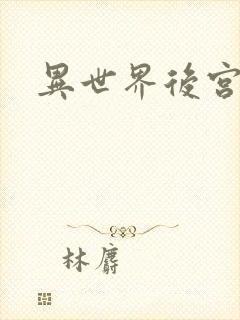 異世界後宮
林麝